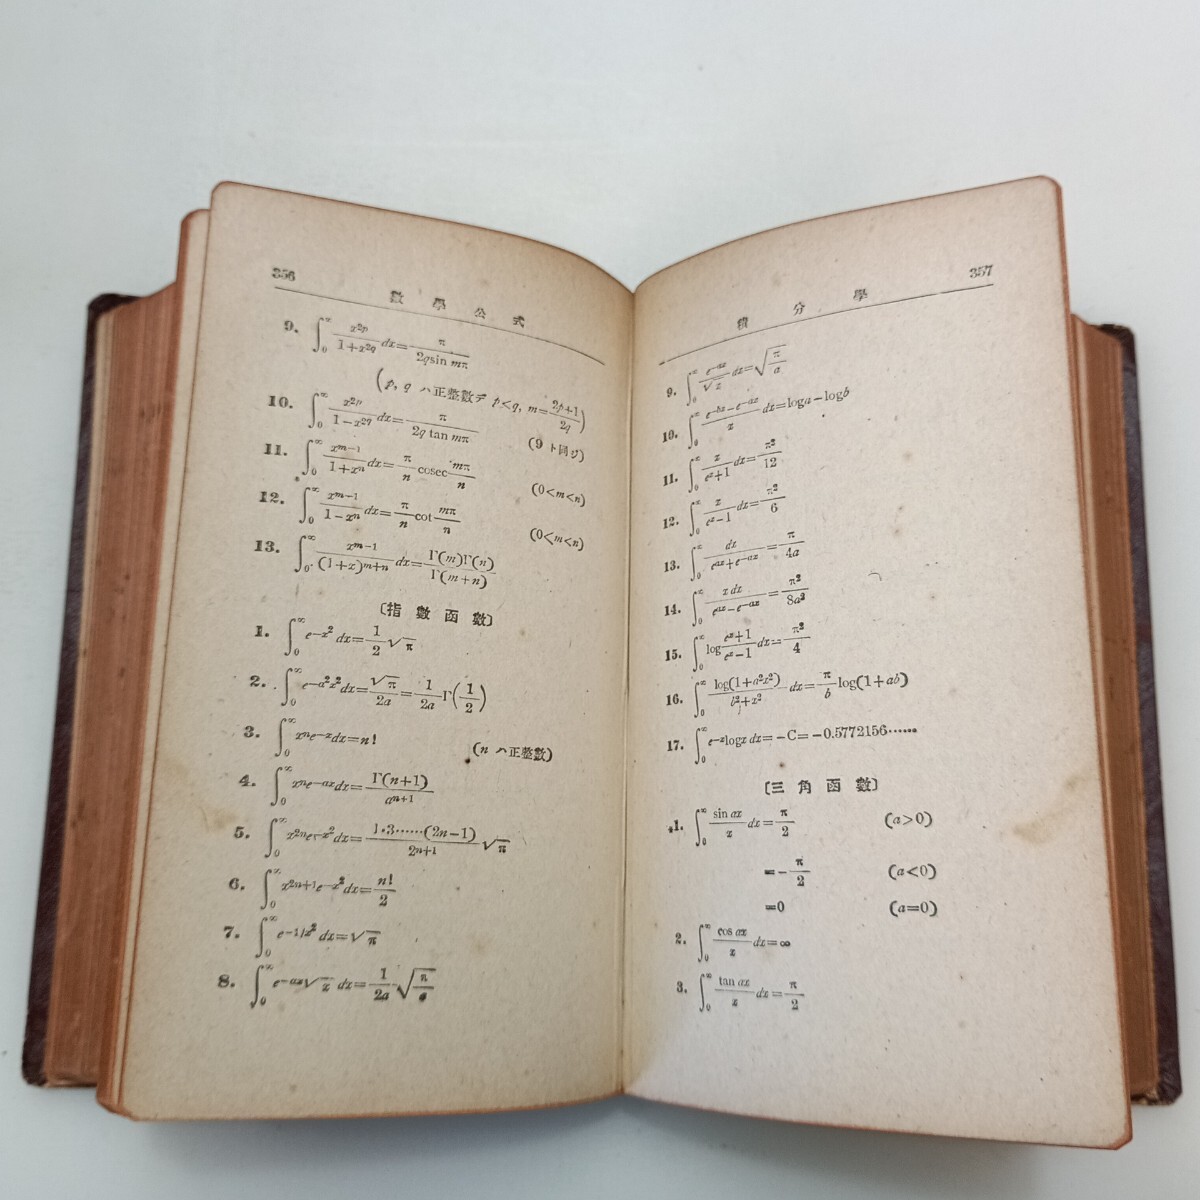 356
數學公式
9. ∫₀^∞ x^{2p}/(1+x^{2q}) dx = π/(2q sin mπ)
(p, q ハ正整數デ p<q, m=(2p+1)/(2q))
10. ∫₀^∞ x^{2p}/(1−x^{2q}) dx = π/(2q tan mπ) (9 ト同ジ)
11. ∫₀^∞ x^{m−1}/(1+x^n) dx = π/n cosec mπ/n (0<m<n)
12. ∫₀^∞ x^{m−1}/(1−x^n) dx = π/n cot mπ/n (0<m<n)
13. ∫₀^∞ x^{m−1}/(1+x)^{m+n} dx = Γ(m)Γ(n)/Γ(m+n)
〔指數函數〕
1. ∫₀^∞ e^{−x²} dx = 1/2 √π
2. ∫₀^∞ e^{−a²x²} dx = √π/2a = 1/2a Γ(1/2)
3. ∫₀^∞ x^n e^{−x} dx = n! (n ハ正整數)
4. ∫₀^∞ x^n e^{−ax} dx = Γ(n+1)/a^{n+1}
5. ∫₀^∞ x^{2n} e^{−x²} dx = 1·3……(2n−1)/2^{n+1} √π
6. ∫₀^∞ x^{2n+1} e^{−x²} dx = n!/2
7. ∫₀^∞ e^{−1/x²} dx = √π
8. ∫₀^∞ e^{−ax} √x dx = 1/2a √(π/a)
357
積分學
9. ∫₀^∞ e^{−ax}/√x dx = √(π/a)
10. ∫₀^∞ (e^{−bx}−e^{−ax})/x dx = log a − log b
11. ∫₀^∞ x/(e^x+1) dx = π²/12
12. ∫₀^∞ x/(e^x−1) dx = π²/6
13. ∫₀^∞ dx/(e^{ax}+e^{−ax}) = π/4a
14. ∫₀^∞ x dx/(e^{ax}−e^{−ax}) = π²/8a²
15. ∫₀^∞ log (e^x+1)/(e^x−1) dx = π²/4
16. ∫₀^∞ log(1+a²x²)/(b²+x²) dx = π/b log(1+ab)
17. ∫₀^∞ e^{−x} log x dx = −C = −0.5772156……
〔三角函數〕
1. ∫₀^∞ sin ax/x dx = π/2 (a>0)
= −π/2 (a<0)
=0 (a=0)
2. ∫₀^∞ cos ax/x dx = ∞
3. ∫₀^∞ tan ax/x dx = π/2